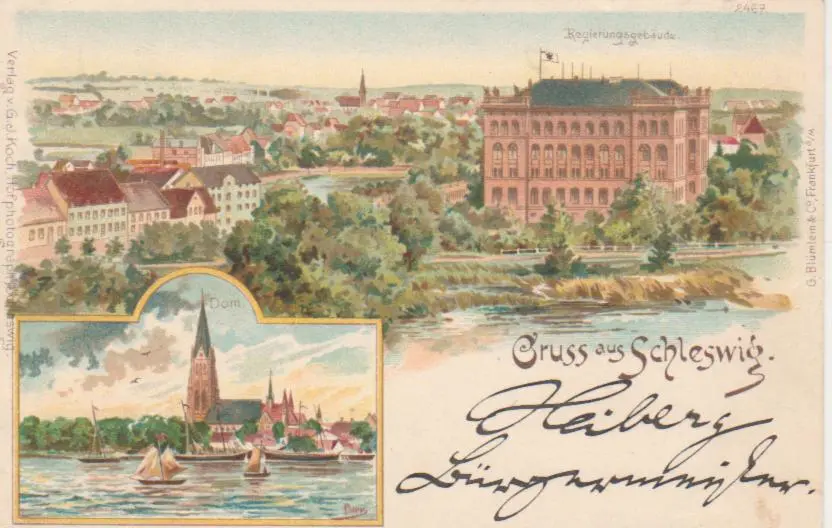 2467.
Regierungsgebäude.
Verlag v. G. d. Koch, Hofphotograph, Schleswig.
G. Blümlein & Co, Frankfurt a/M.
Dom.
Gruss aus Schleswig.
Heiberg
Bürgermeister.